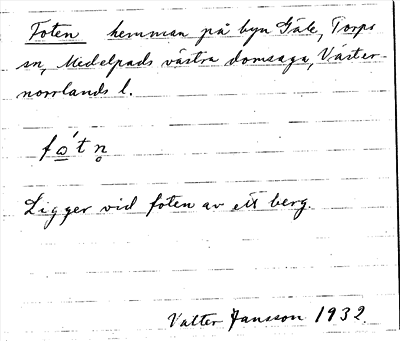 Foten hemman på byn Gåle, Torps
sn, Medelpads västra domsaga, Väster-
norrlands l.
fo̲´tn̥
Ligger vid foten av ett berg.
Valter Jansson 1932.